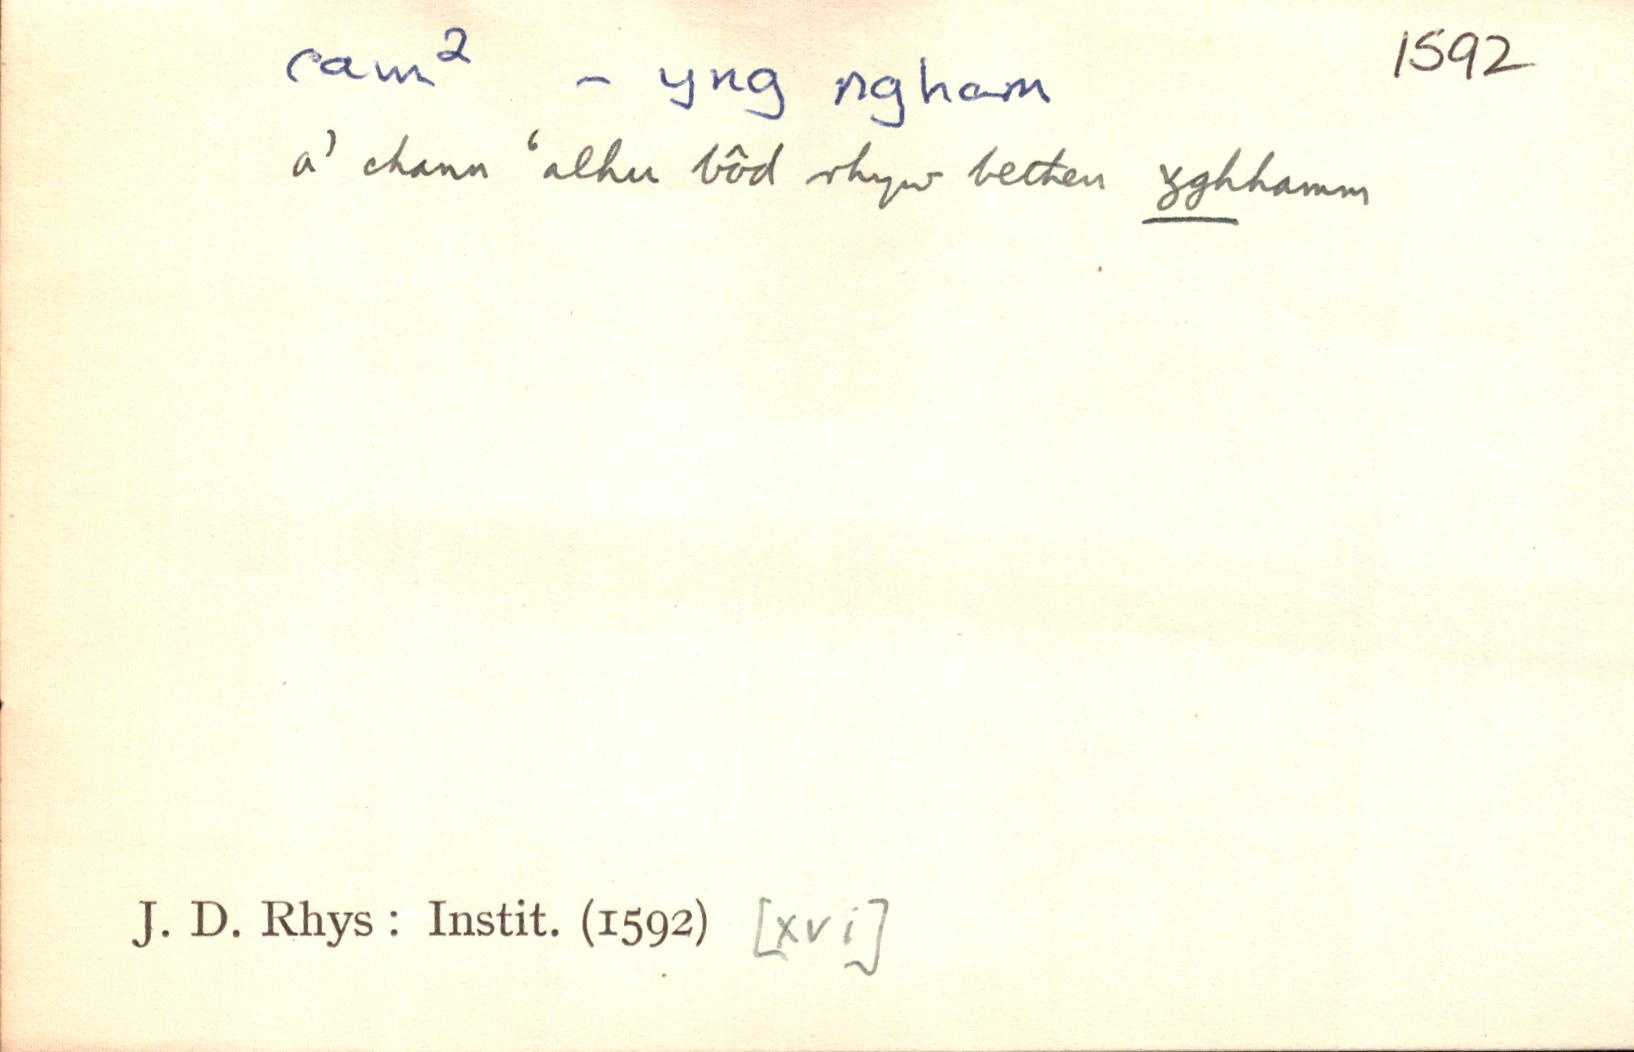 cam² - yng ngham 1592
a' chann 'alhu bôd rhyw bethen yghhamm
J. D. Rhys : Instit. (1592) [xvi]